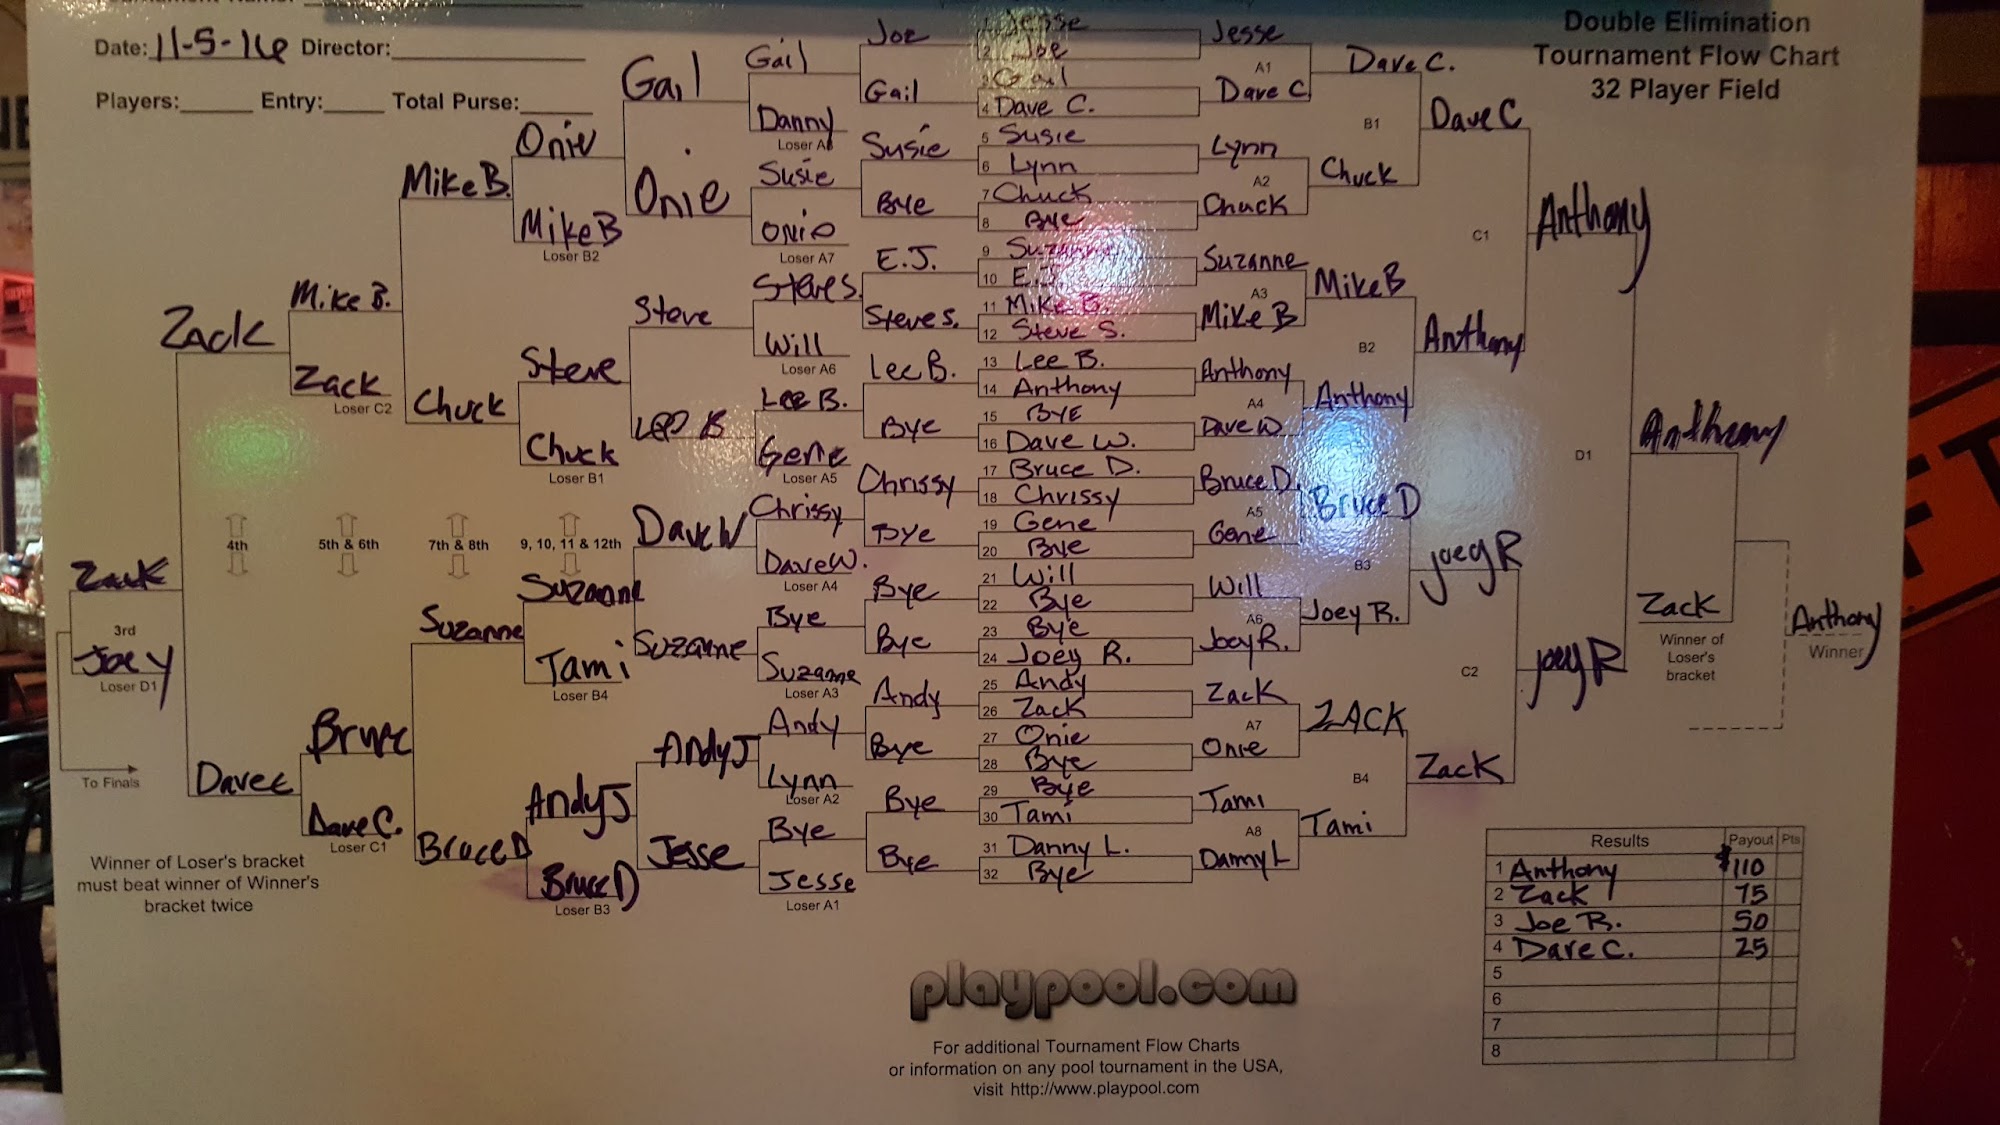 Date: 11-5-16 Director:
Players: Entry: Total Purse:
Double Elimination
Tournament Flow Chart
32 Player Field
1 Jesse
2 Joe
3 Gail
4 Dave C.
5 Susie
6 Lynn
7 Chuck
8 Bye
9 Suzanne
10 E.J.
11 Mike B.
12 Steve S.
13 Lee B.
14 Anthony
15 Bye
16 Dave W.
17 Bruce D.
18 Chrissy
19 Gene
20 Bye
21 Will
22 Bye
23 Bye
24 Joey R.
25 Andy
26 Zack
27 Onie
28 Bye
29 Bye
30 Tami
31 Danny L.
32 Bye
Jesse
A1
Dave C
Lynn
A2
Chuck
Suzanne
A3
Mike B
Anthony
A4
Dave W
Bruce D.
A5
Gene
Will
A6
Joey R.
Zack
A7
Onie
Tami
A8
Danny L
Dave C.
B1
Chuck
Mike B
B2
Anthony
Bruce D
B3
Joey R.
ZACK
B4
Tami
Dave C
C1
Anthony
Joey R
C2
Zack
Anthony
D1
Joey R
Anthony
Zack
Winner of
Loser's
bracket
Anthony
Winner
Joe
Gail
Susie
Bye
E.J.
Steve S.
Lee B.
Bye
Chrissy
Bye
Bye
Bye
Andy
Bye
Bye
Bye
Gail
Danny
Loser A8
Susie
Onie
Loser A7
Steve S.
Will
Loser A6
Lee B.
Gene
Loser A5
Chrissy
Dave W.
Loser A4
Bye
Suzanne
Loser A3
Andy
Lynn
Loser A2
Bye
Jesse
Loser A1
Gail
Onie
Steve
Lee B
Dave W
Suzanne
Andy J
Jesse
Onie
Mike B
Loser B2
Steve
Chuck
Loser B1
9, 10, 11 & 12th
Suzanne
Tami
Loser B4
Andy J
Bruce D
Loser B3
Mike B.
Chuck
7th & 8th
Suzanne
Bruce D
Mike B.
Zack
Loser C2
5th & 6th
Bruce
Dave C.
Loser C1
Zack
4th
Dave C
Zack
3rd
Joey
Loser D1
To Finals
Winner of Loser's bracket
must beat winner of Winner's
bracket twice
Results Payout Pts
1 Anthony $110
2 Zack 75
3 Joe R. 50
4 Dave C. 25
5
6
7
8
playpool.com
For additional Tournament Flow Charts
or information on any pool tournament in the USA,
visit http://www.playpool.com